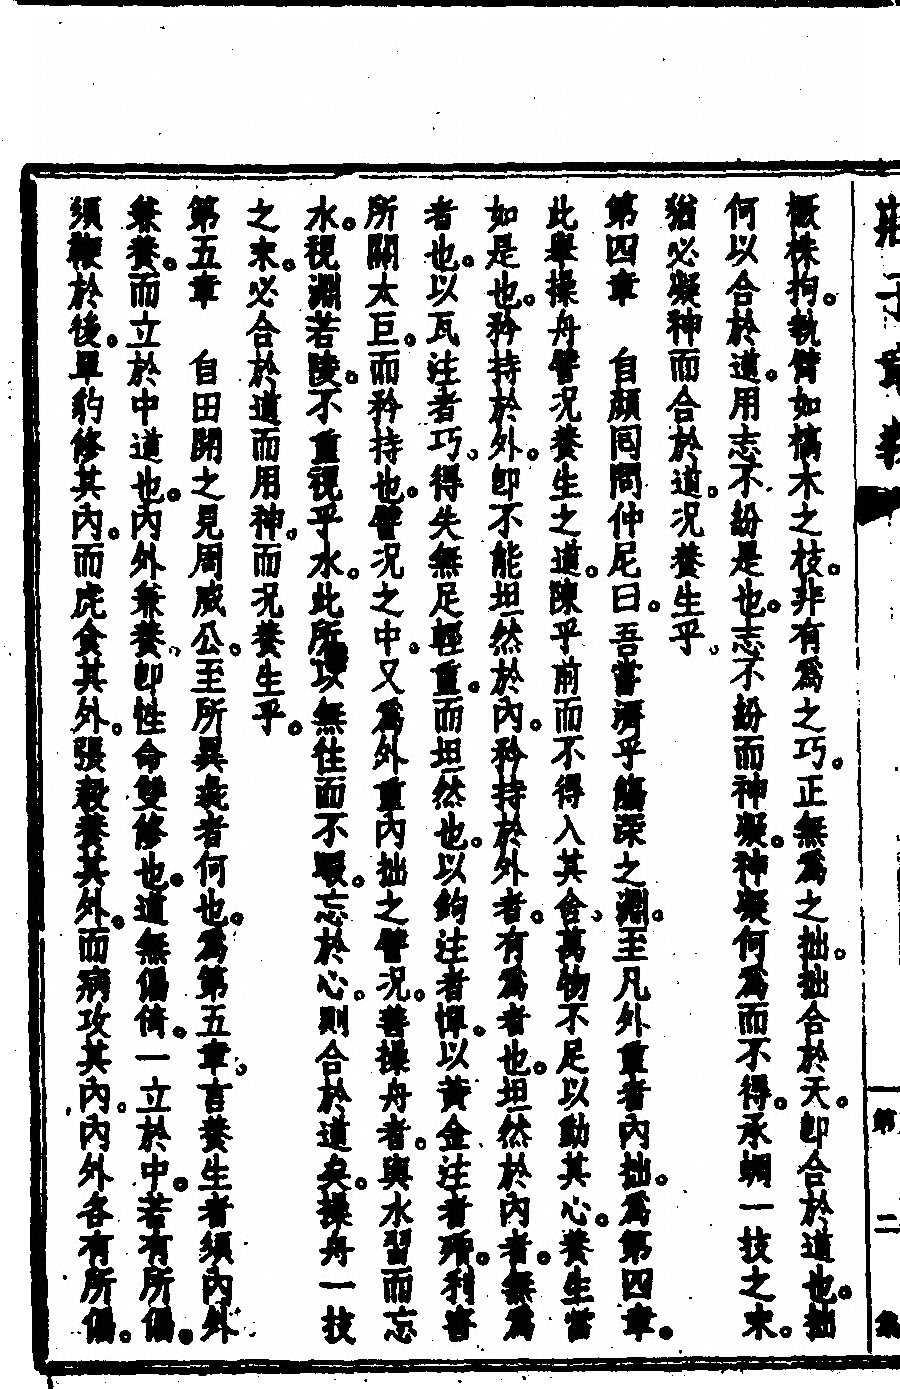 橛株拘。執臂如槁木之枝。非有爲之巧。正無爲之拙。拙合於天。卽合於道也。拙
何以合於道。用志不紛是也。志不紛而神凝。神凝何爲而不得。承蜩一技之末。
猶必凝神而合於道。況養生乎。
第四章　自顏囘問仲尼曰。吾嘗濟乎觴深之淵。至凡外重者內拙。爲第四章。
此舉操舟譬況養生之道。陳乎前而不得入其舍。萬物不足以動其心。養生當
如是也。矜持於外。卽不能坦然於內。矜持於外者。有爲者也。坦然於內者。無爲
者也。以瓦注者巧。得失無足輕重。而坦然也。以鉤注者憚。以黃金注者殙。利害
所關太巨。而矜持也。譬況之中。又爲外重內拙之譬況。善操舟者。與水習而忘
水。視淵若陵。不重視乎水。此所以無往而不暇。忘於心。則合於道矣。操舟一技
之末。必合於道而用神。而況養生乎。
第五章　自田開之見周威公。至所異彘者何也。爲第五章。言養生者須內外
兼養。而立於中道也。內外兼養。卽性命雙修也。道無偏倚。一立於中。若有所偏。
須鞭於後。單豹修其內。而虎食其外。張毅養其外。而病攻其內。內外各有所偏。
第二集